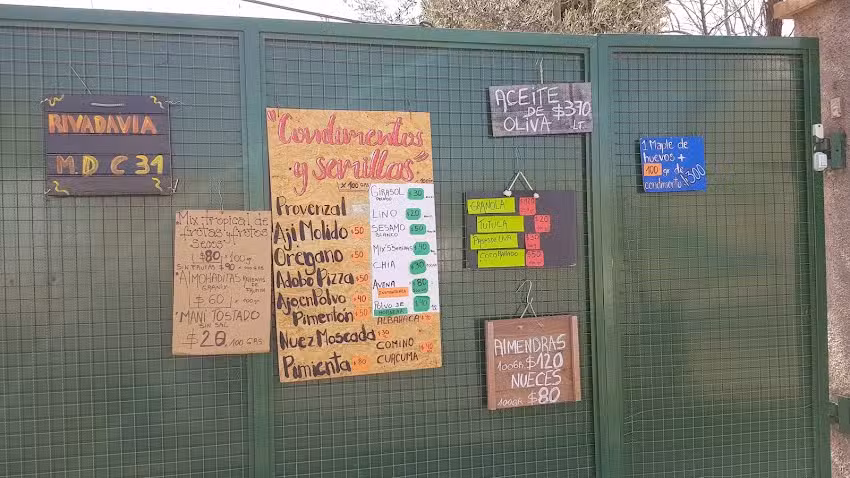 RIVADAVIA
M.D C 31
Mix Tropical de
frutas y frutos
secos
$80 x 100g
SIN FRUTAS $90
"ALMOHADITAS
$60
"MANI TOSTADO
SIN SAL
$20 100 GRS
"Condimentos
y semillas"
x 100 GRS
Provenzal
Aji Molido $50
Oregano $50
Adobo Pizza $50
Ajo en Polvo $40
Pimenton $50
Nuez Moscada $30
Pimienta $80
GIRASOL $30
LINO $20
SESAMO $50
BLANCO
MIX 5 Semillas $40
CHIA $30
AVENA $80
POLVO DE
ALBAHACA
COMINO
CURCUMA
ACEITE
DE $370
OLIVA LT.
GRANOLA
TUTUCA
PASAS DE UVA
COCO RALLADO
ALMENDRAS
100GR $120
NUECES
100GR $80
1 Maple de
huevos +
100 gr de
condimento $300